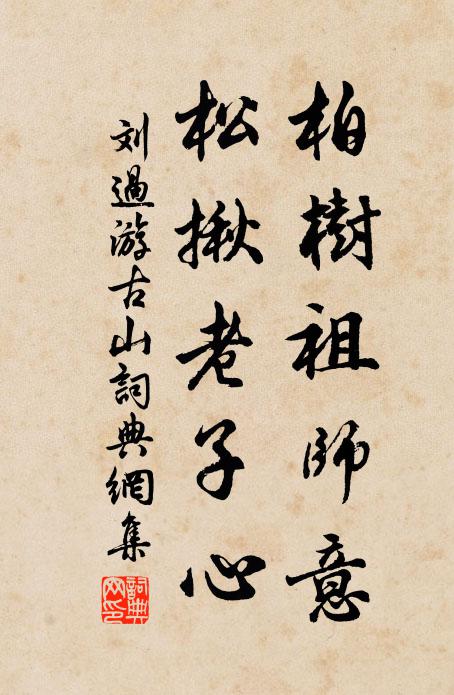 柏樹祖師意
松揪老子心
刘過游古山詞典網集
詞典網印